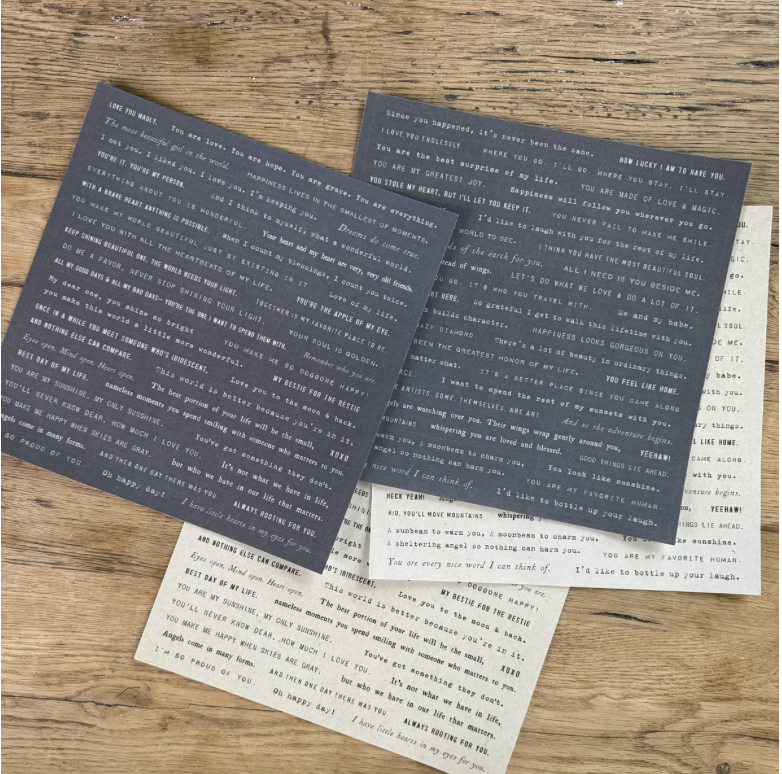 LOVE YOU MADLY. You are love. You are hope. You are grace. You are everything.
The most beautiful girl in the world. HAPPINESS LIVES IN THE SMALLEST OF MOMENTS.
I met you. I liked you. I love you. I'm keeping you. Dreams do come true.
YOU'RE IT. YOU'RE MY PERSON. And I think to myself, what a wonderful world.
EVERYTHING ABOUT YOU IS WONDERFUL. Your heart and my heart are very, very old friends.
WITH A BRAVE HEART ANYTHING IS POSSIBLE. When I count my blessings, I count you twice.
YOU MAKE MY WORLD BEAUTIFUL JUST BY EXISTING IN IT Love of my life.
I LOVE YOU WITH ALL THE HEARTBEATS OF MY LIFE. YOU'RE THE APPLE OF MY EYE.
KEEP SHINING BEAUTIFUL ONE. THE WORLD NEEDS YOUR LIGHT. TOGETHER IS MY FAVORITE PLACE TO BE
DO ME A FAVOR, NEVER STOP SHINING YOUR LIGHT. YOUR SOUL IS GOLDEN.
ALL MY GOOD DAYS & ALL MY BAD DAYS—YOU'RE THE ONE I WANT TO SPEND THEM WITH. Remember who you are.
My dear one, you shine so bright YOU MAKE ME SO DOGGONE HAPPY!
you make this world a little more wonderful. MY BESTIE FOR THE BESTIE
ONCE IN A WHILE YOU MEET SOMEONE WHO'S IRIDESCENT, Love you to the moon & back.
AND NOTHING ELSE CAN COMPARE. This world is better because you're in it.
Eyes open. Mind open. Heart open. The best portion of your life will be the small, XOXO
BEST DAY OF MY LIFE. nameless moments you spend smiling with someone who matters to you.
YOU ARE MY SUNSHINE, MY ONLY SUNSHINE. You've got something they don't.
YOU'LL NEVER KNOW DEAR, HOW MUCH I LOVE YOU. It's not what we have in life,
YOU MAKE ME HAPPY WHEN SKIES ARE GRAY. but who we have in our life that matters.
Angels come in many forms. AND THEN ONE DAY THERE WAS YOU ALWAYS ROOTING FOR YOU.
SO PROUD OF YOU. Oh happy day! I have little hearts in my eyes for you.
Since you happened, it's never been the same. HOW LUCKY I AM TO HAVE YOU.
I LOVE YOU ENDLESSLY WHERE YOU GO, I'LL GO. WHERE YOU STAY, I'LL STAY.
You are the best surprise of my life. YOU ARE MADE OF LOVE & MAGIC.
YOU ARE MY GREATEST JOY. Happiness will follow you wherever you go.
YOU STOLE MY HEART, BUT I'LL LET YOU KEEP IT. YOU NEVER FAIL TO MAKE ME SMILE.
I'd like to laugh with you for the rest of my life.
WORLD TO SEE. I THINK YOU HAVE THE MOST BEAUTIFUL SOUL.
of the earth for you. ALL I NEED IS YOU BESIDE ME.
of wings. LET'S DO WHAT WE LOVE & DO A LOT OF IT.
GO, IT'S WHO YOU TRAVEL WITH. Me and my babe.
HERE. So grateful I get to walk this lifetime with you.
builds character. HAPPINESS LOOKS GORGEOUS ON YOU.
DIAMOND There's a lot of beauty in ordinary things.
BEEN THE GREATEST HONOR OF MY LIFE. YOU FEEL LIKE HOME.
matter what. IT'S A BETTER PLACE SINCE YOU CAME ALONG
I want to spend the rest of my sunsets with you.
ARTISTS. SOME, THEMSELVES, ARE ART. And so the adventure begins.
are watching over you. Their wings wrap gently around you, YEEHAW!
MOUNTAINS whispering you are loved and blessed. GOOD THINGS LIE AHEAD.
warm you, A moonbeam to charm you. You look like sunshine.
angel so nothing can harm you. YOU ARE MY FAVORITE HUMAN
nice word I can think of. I'd like to bottle up your laugh.
you.
STAY.
go.
SMILE.
life.
SOUL.
ME.
OF IT.
babe.
with you.
ON YOU.
things.
LIKE HOME.
CAME ALONG
with you.
adventure begins.
YEEHAW!
THINGS LIE AHEAD.
HECK YEAH!
KID, YOU'LL MOVE MOUNTAINS whispering sunshine.
A sunbeam to warm you, A moonbeam to charm you.
A sheltering angel so nothing can harm you. YOU ARE MY FAVORITE HUMAN
You are every nice word I can think of. I'd like to bottle up your laugh.
bright DOGGONE HAPPY!
more MY BESTIE FOR THE BESTIE
IRIDESCENT, Love you to the moon & back.
AND NOTHING ELSE CAN COMPARE. This world is better because you're in it.
Eyes open. Mind open. Heart open. The best portion of your life will be the small, XOXO
BEST DAY OF MY LIFE. nameless moments you spend smiling with someone who matters to you.
YOU ARE MY SUNSHINE, MY ONLY SUNSHINE. You've got something they don't.
YOU'LL NEVER KNOW DEAR, HOW MUCH I LOVE YOU. It's not what we have in life,
YOU MAKE ME HAPPY WHEN SKIES ARE GRAY. but who we have in our life that matters.
Angels come in many forms. AND THEN ONE DAY THERE WAS YOU ALWAYS ROOTING FOR YOU.
I'M SO PROUD OF YOU. Oh happy day! I have little hearts in my eyes for you.